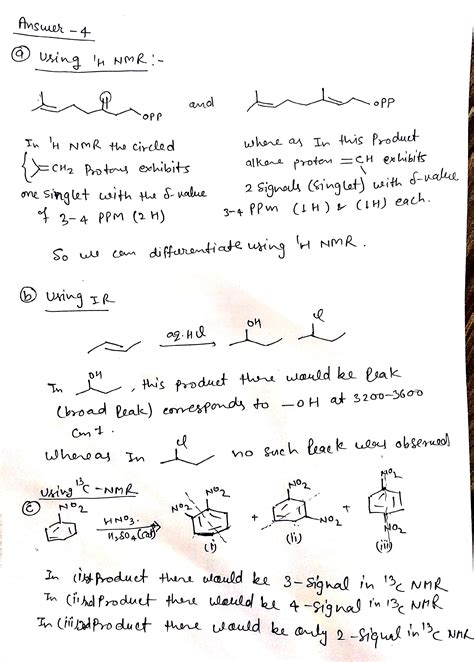 Answer - 4
(a) Using ¹H NMR :-
OPP and OPP
In ¹H NMR the circled
=CH₂ Protons exhibits
one singlet with the δ-value
of 3-4 PPM (2H)
where as In this Product
alkene proton =CH exhibits
2 signals (singlet) with δ-value
3-4 PPM (1H) & (1H) each.
So we can differentiate using ¹H NMR.
(b) Using IR
aq. HCl OH Cl
In OH , this product there would be Peak
(broad Peak) corresponds to -OH at 3200-3600
cm⁻1.
Whereas In Cl no such Peack was observed
(c) Using ¹³C-NMR
NO₂ HNO₃ H₂SO₄(cat) NO₂ NO₂ (i) + NO₂ NO₂ (ii) + NO₂ NO₂ (iii)
In (i)st Product there would be 3-signal in ¹³C NMR
In (ii)nd Product there would be 4-signal in ¹³C NMR
In (iii)rd Product there would be only 2-signal in ¹³C NMR